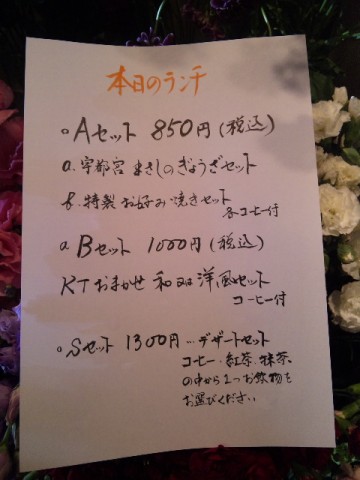 本日のランチ
。Aセット 850円(税込)
a. 宇都宮 まさしのぎょうざセット
b. 特製 お好み焼きセット
各コーヒー付
。Bセット 1000円(税込)
KTおまかせ 和又は洋風セット
コーヒー付
。Sセット 1300円…デザートセット
コーヒー・紅茶・抹茶
の中から1つお飲物を
お選びください